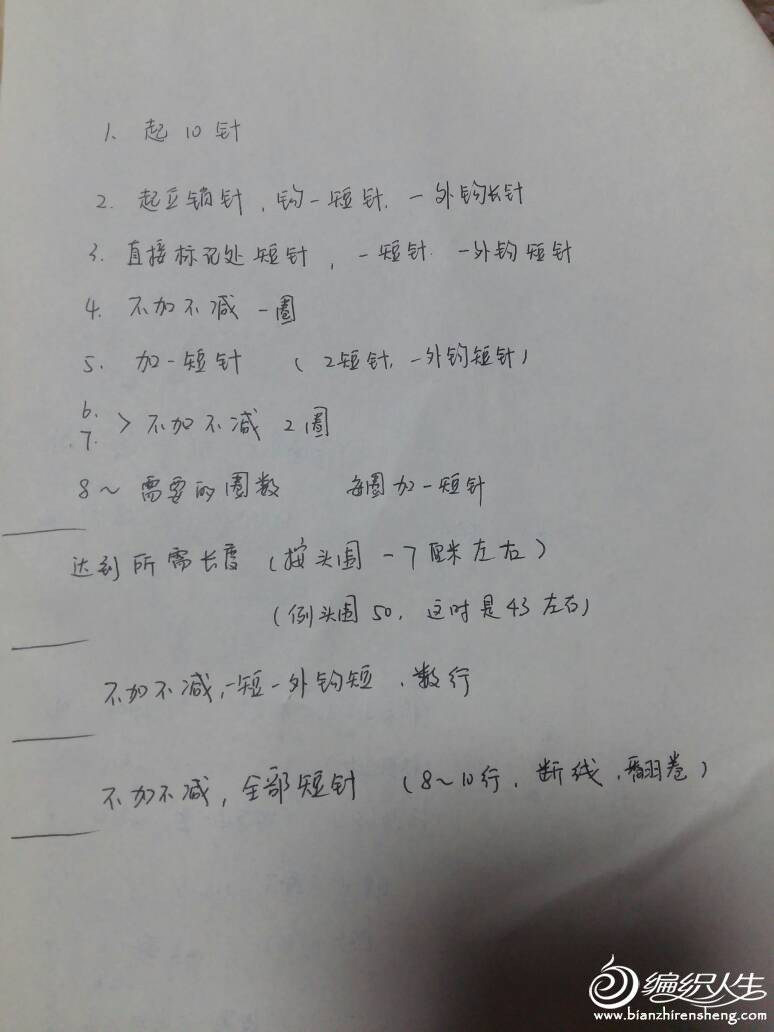 1. 起10针
2. 起立锁针，钩一短针，一外钩长针
3. 直接标记处短针，一短针 一外钩短针
4. 不加不减一圈
5. 加一短针 （2短针，一外钩短针）
6.
7. > 不加不减2圈
8～需要的圈数 每圈加一短针
达到所需长度（按头围－7厘米左右）
（例头围50，这时是43左右）
不加不减，一短一外钩短，数行
不加不减，全部短针 （8～10行，断线，翻卷）
编织人生
www.bianzhirensheng.com